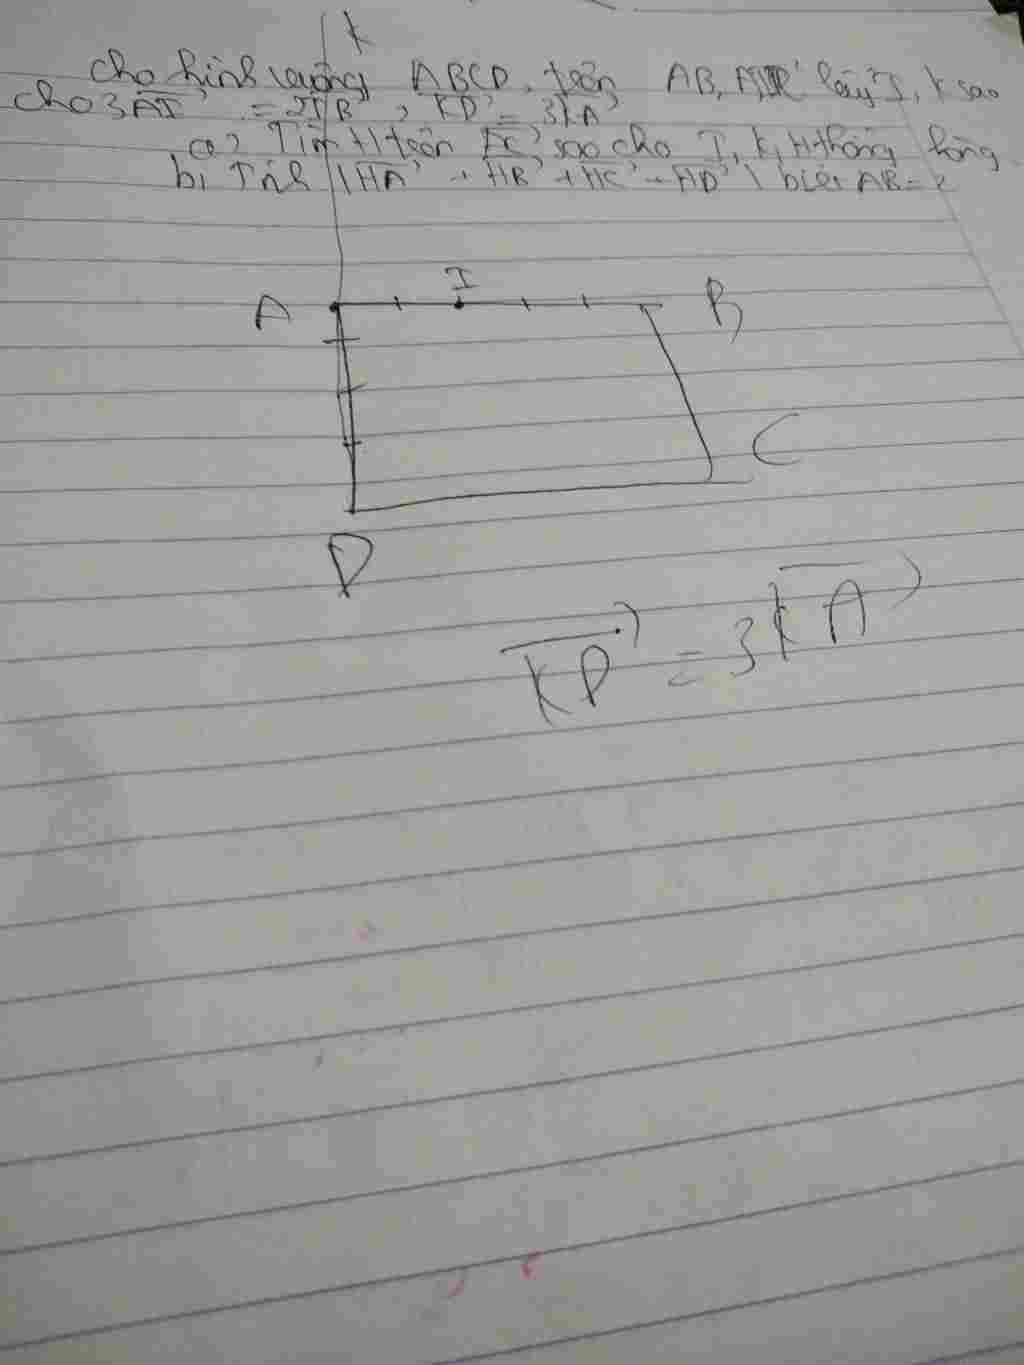 K
Cho hình vuông ABCD. trên AB, AD lấy I, K sao
cho 3AI = 2IB, KD = 3KA
a, Tìm H trên BC sao cho I, K, H thẳng hàng
b, Tính |HA + HB + HC + HD| biết AB = 2
I
A B
C
D
KD = 3KA